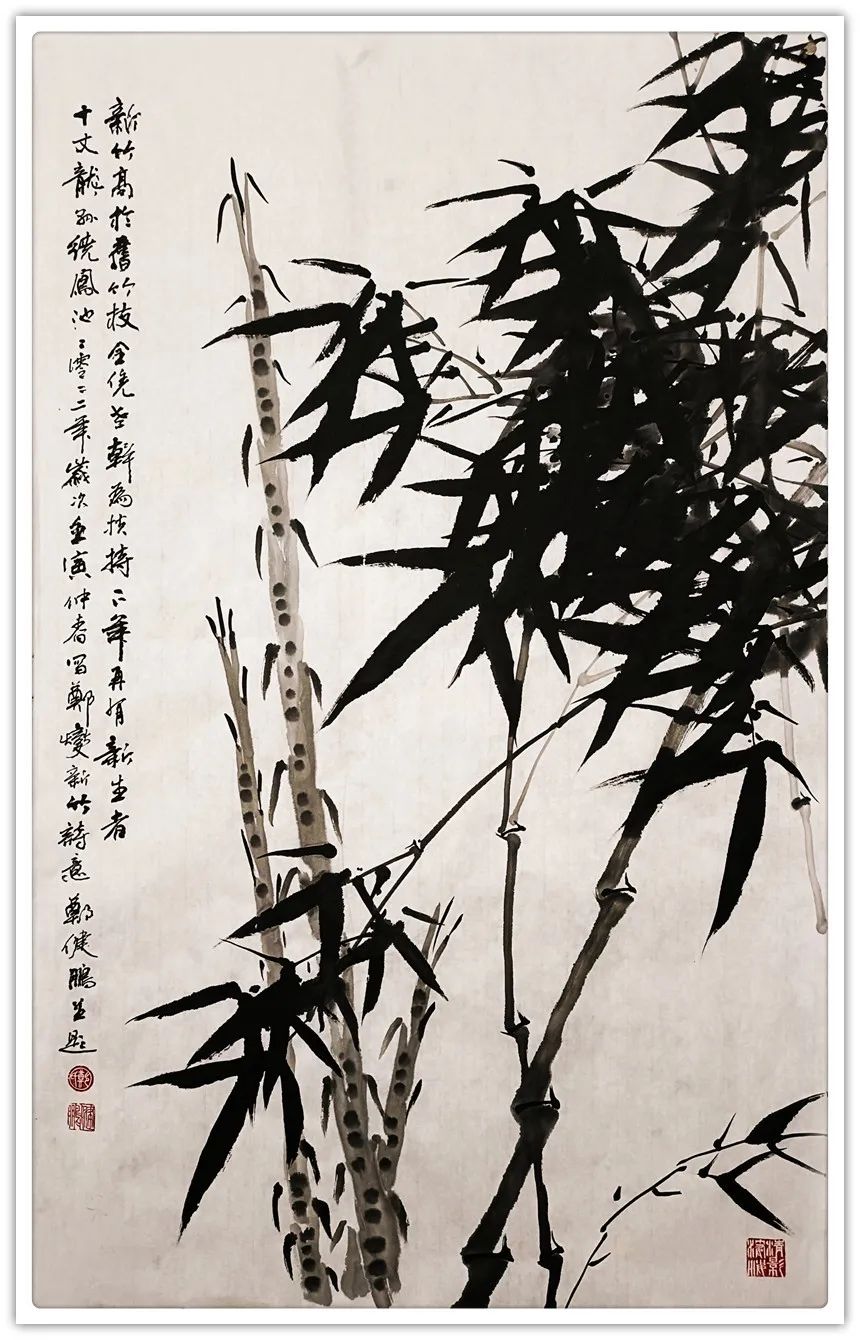 新竹高於舊竹枝全凭老幹為扶持下年再有新生者
十丈龍孫繞鳳池二零二二年歲次壬寅仲春寫鄭燮新竹詩意鄭健鵬並題
健鵬